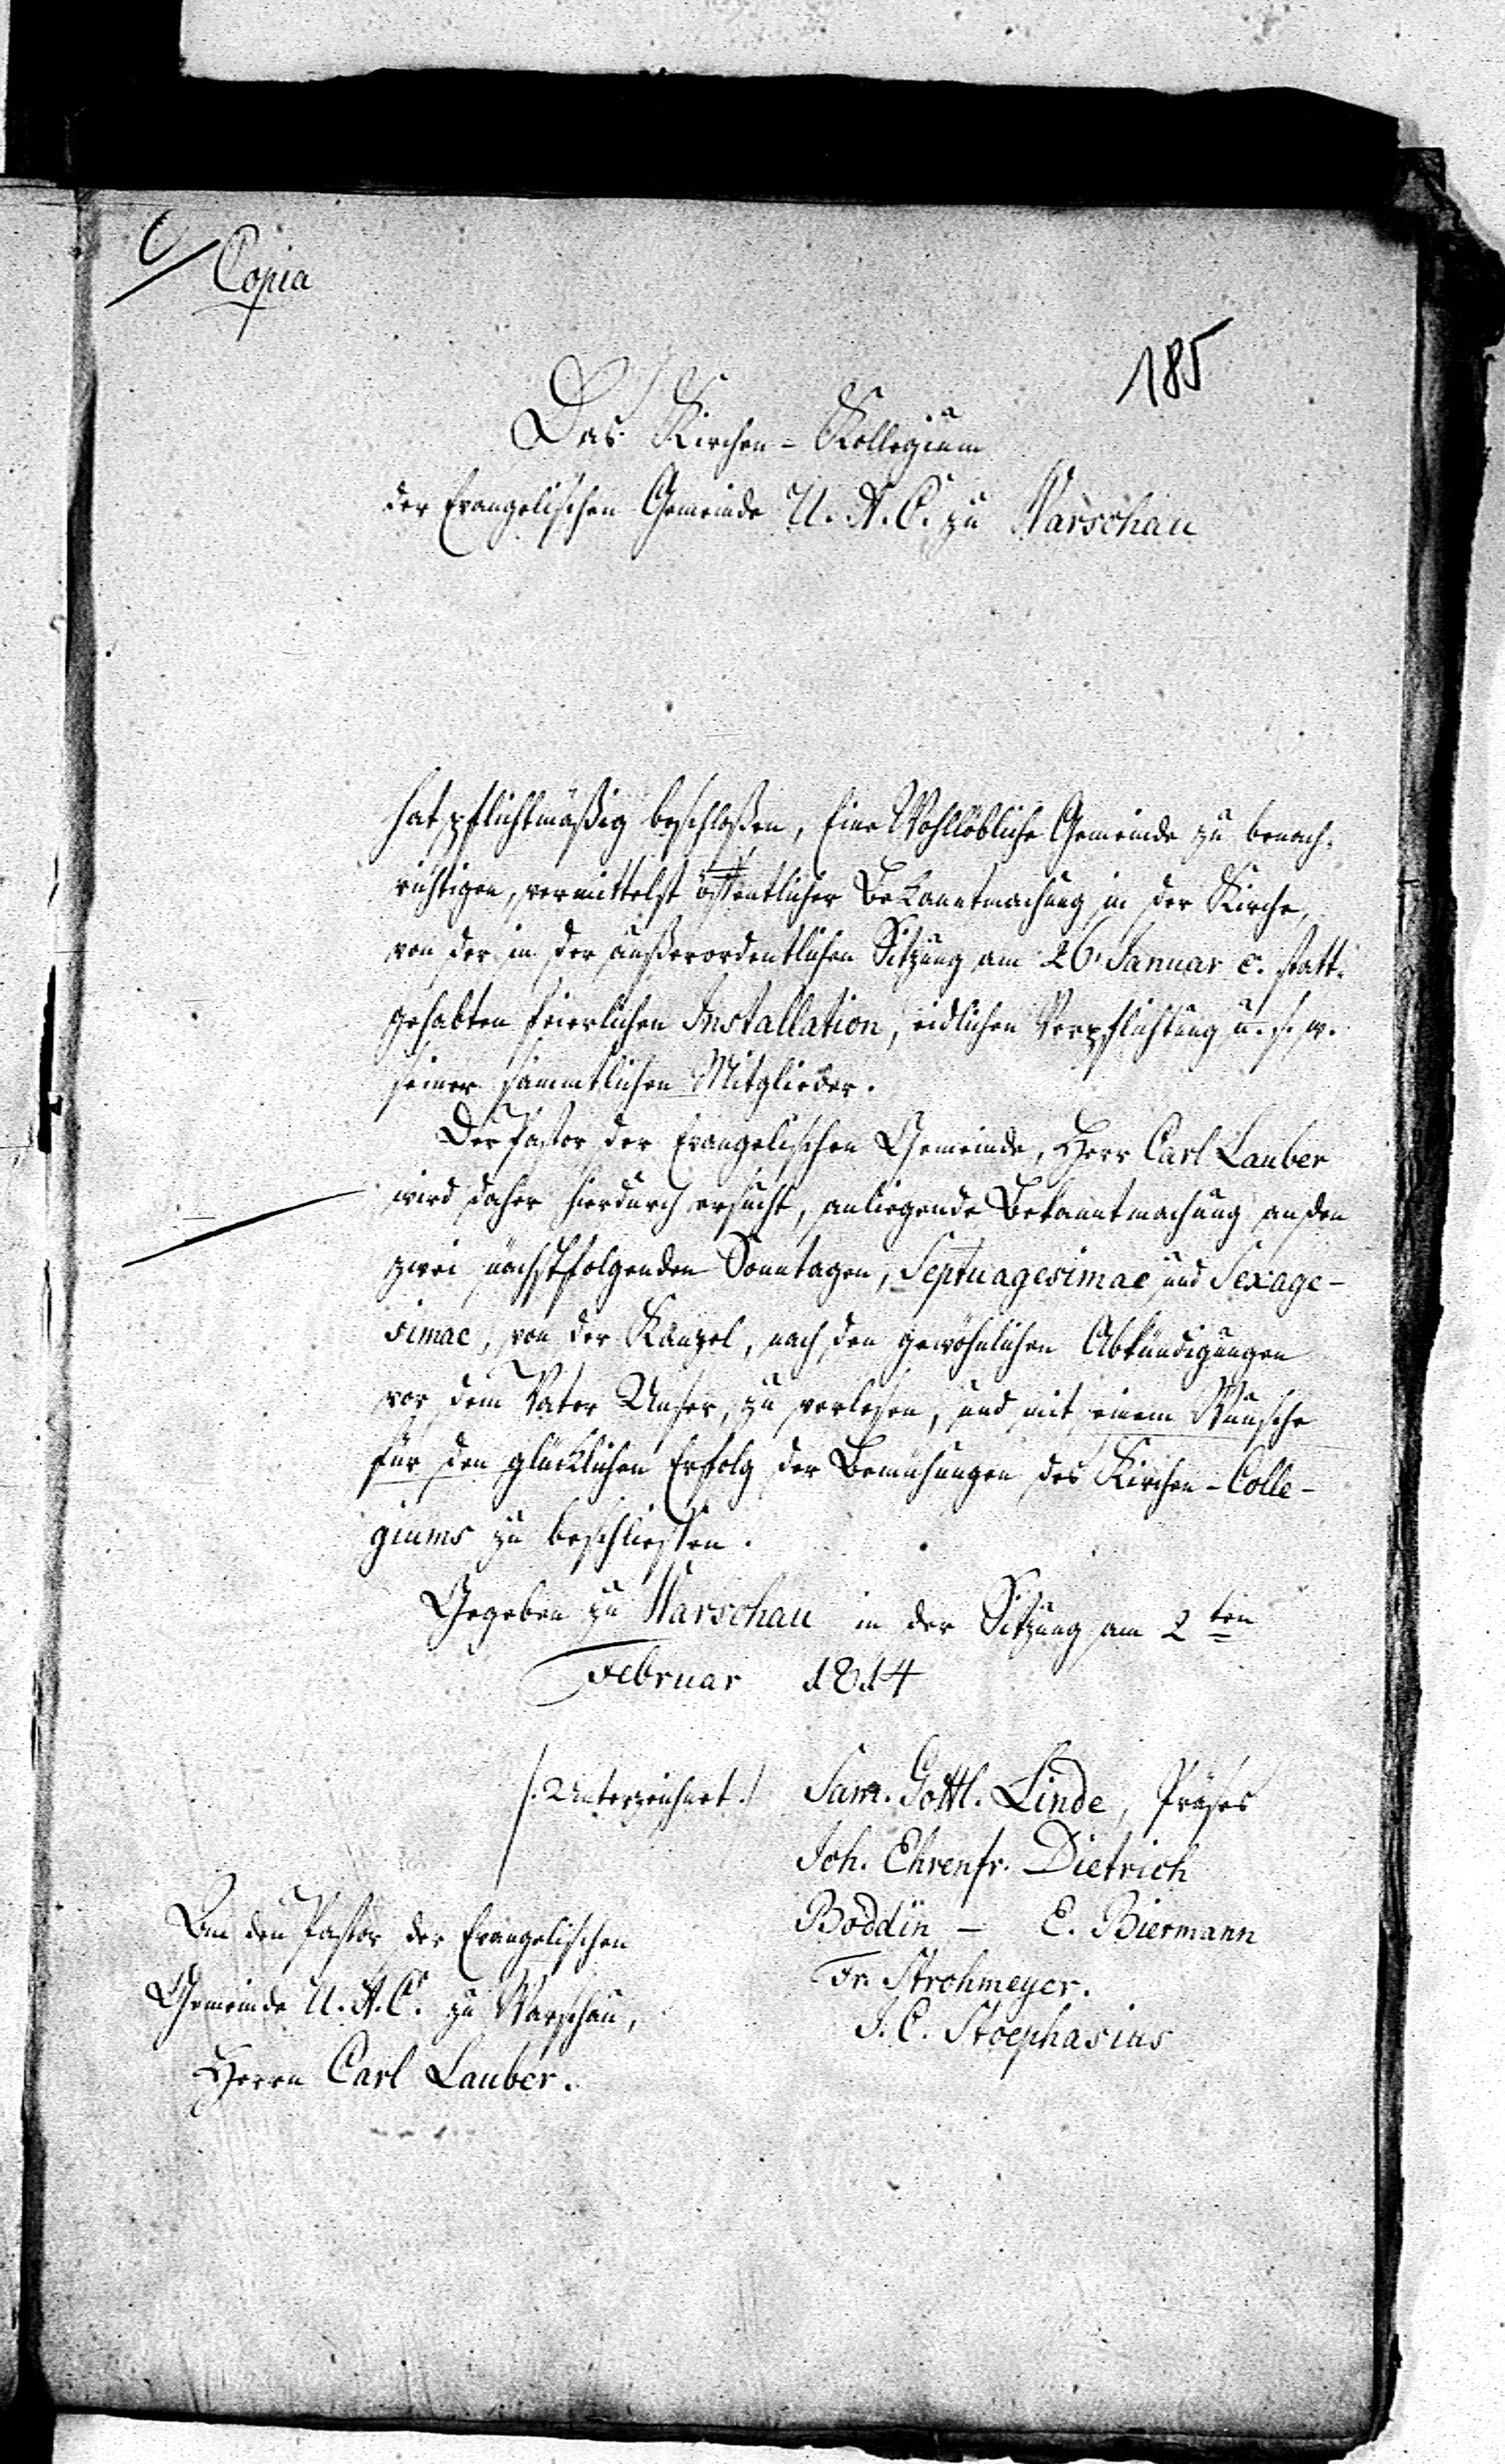 C
Copia
185
Das Kirchen-Kollegium
der Evangelischen Gemeinde U. A. C. zu Warschau
hat pflichtmäßig beschloßen, Eine Wohllöbliche Gemeinde zu benach-
richtigen, vermittelst öffentlicher Bekanntmachung in der Kirche,
von der in der außerordentlichen Sitzung am 26. Januar c. statt-
gehabten feierlichen Installation, eidlichen Verpflichtung u. s. w.
seiner sämmtlichen Mitglieder.
Der Pastor der Evangelischen Gemeinde, Herr Carl Lauber
wird daher hierdurch ersucht, anliegende Bekanntmachung an den
zwei nächstfolgenden Sonntagen, Septuagesimae und Sexage-
simae, von der Kanzel, nach den gewöhnlichen Abkündigungen
vor dem Vater Unser, zu verlesen, und mit einem Wunsche
für den glücklichen Erfolg der Bemühungen des Kirchen-Colle-
giums zu beschliessen.
Gegeben zu Warschau in der Sitzung am 2ten
Februar 1814
/:Unterzeichnet:/ Sam. Gottl. Linde, Präses
Joh. Ehrenfr. Dietrich
Boddin - E. Biermann
Fr. Strohmeyer.
J. C. Stoephasius
An den Pastor der Evangelischen
Gemeinde U. A. C. zu Warschau,
Herrn Carl Lauber.